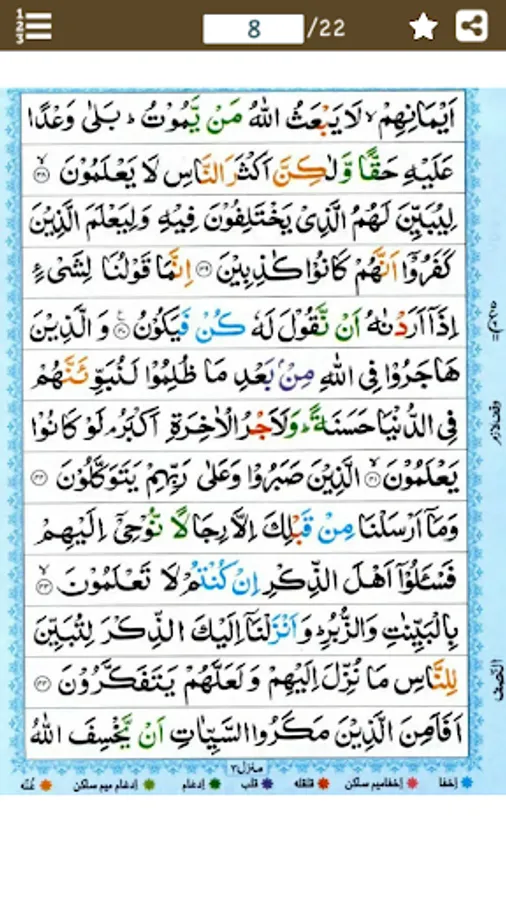 8 /22
اَيْمَانِهِمْ ۙ لَا يَبْعَثُ اللّٰهُ مَنْ يَّمُوْتُ ؕ بَلٰى وَعْدًا
عَلَيْهِ حَقًّا وَّلٰكِنَّ اَكْثَرَ النَّاسِ لَا يَعْلَمُوْنَ ۙ‏﴿۳۸﴾
لِيُبَيِّنَ لَهُمُ الَّذِىْ يَخْتَلِفُوْنَ فِيْهِ وَلِيَعْلَمَ الَّذِيْنَ
كَفَرُوْۤا اَنَّهُمْ كَانُوْا كٰذِبِيْنَ ﴿۳۹﴾ اِنَّمَا قَوْلُنَا لِشَىْءٍ
اِذَاۤ اَرَدْنٰهُ اَنْ نَّقُوْلَ لَهٗ كُنْ فَيَكُوْنُ ﴿۴۰﴾ وَ الَّذِيْنَ
هَاجَرُوْا فِى اللّٰهِ مِنْۢ بَعْدِ مَا ظُلِمُوْا لَنُبَوِّئَنَّهُمْ
فِى الدُّنْيَا حَسَنَةً ؕ وَلَاَجْرُ الْاٰخِرَةِ اَكْبَرُ ۘ لَوْ كَانُوْا
يَعْلَمُوْنَ ۙ﴿۴۱﴾ الَّذِيْنَ صَبَرُوْا وَعَلٰى رَبِّهِمْ يَتَوَكَّلُوْنَ ﴿۴۲﴾
وَمَاۤ اَرْسَلْنَا مِنْ قَبْلِكَ اِلَّا رِجَالًا نُّوْحِىْۤ اِلَيْهِمْ
فَسْئَلُوْۤا اَهْلَ الذِّكْرِ اِنْ كُنْتُمْ لَا تَعْلَمُوْنَ ۙ﴿۴۳﴾
بِالْبَيِّنٰتِ وَالزُّبُرِ ؕ وَاَنْزَلْنَاۤ اِلَيْكَ الذِّكْرَ لِتُبَيِّنَ
لِلنَّاسِ مَا نُزِّلَ اِلَيْهِمْ وَلَعَلَّهُمْ يَتَفَكَّرُوْنَ ﴿۴۴﴾
اَفَاَمِنَ الَّذِيْنَ مَكَرُوا السَّيِّاٰتِ اَنْ يَّخْسِفَ اللّٰهُ
وقف لازم
النصف
منزل ۳
إخفا إخفا ميم ساكن قلقله قلب إدغام إدغام ميم ساكن غنّه